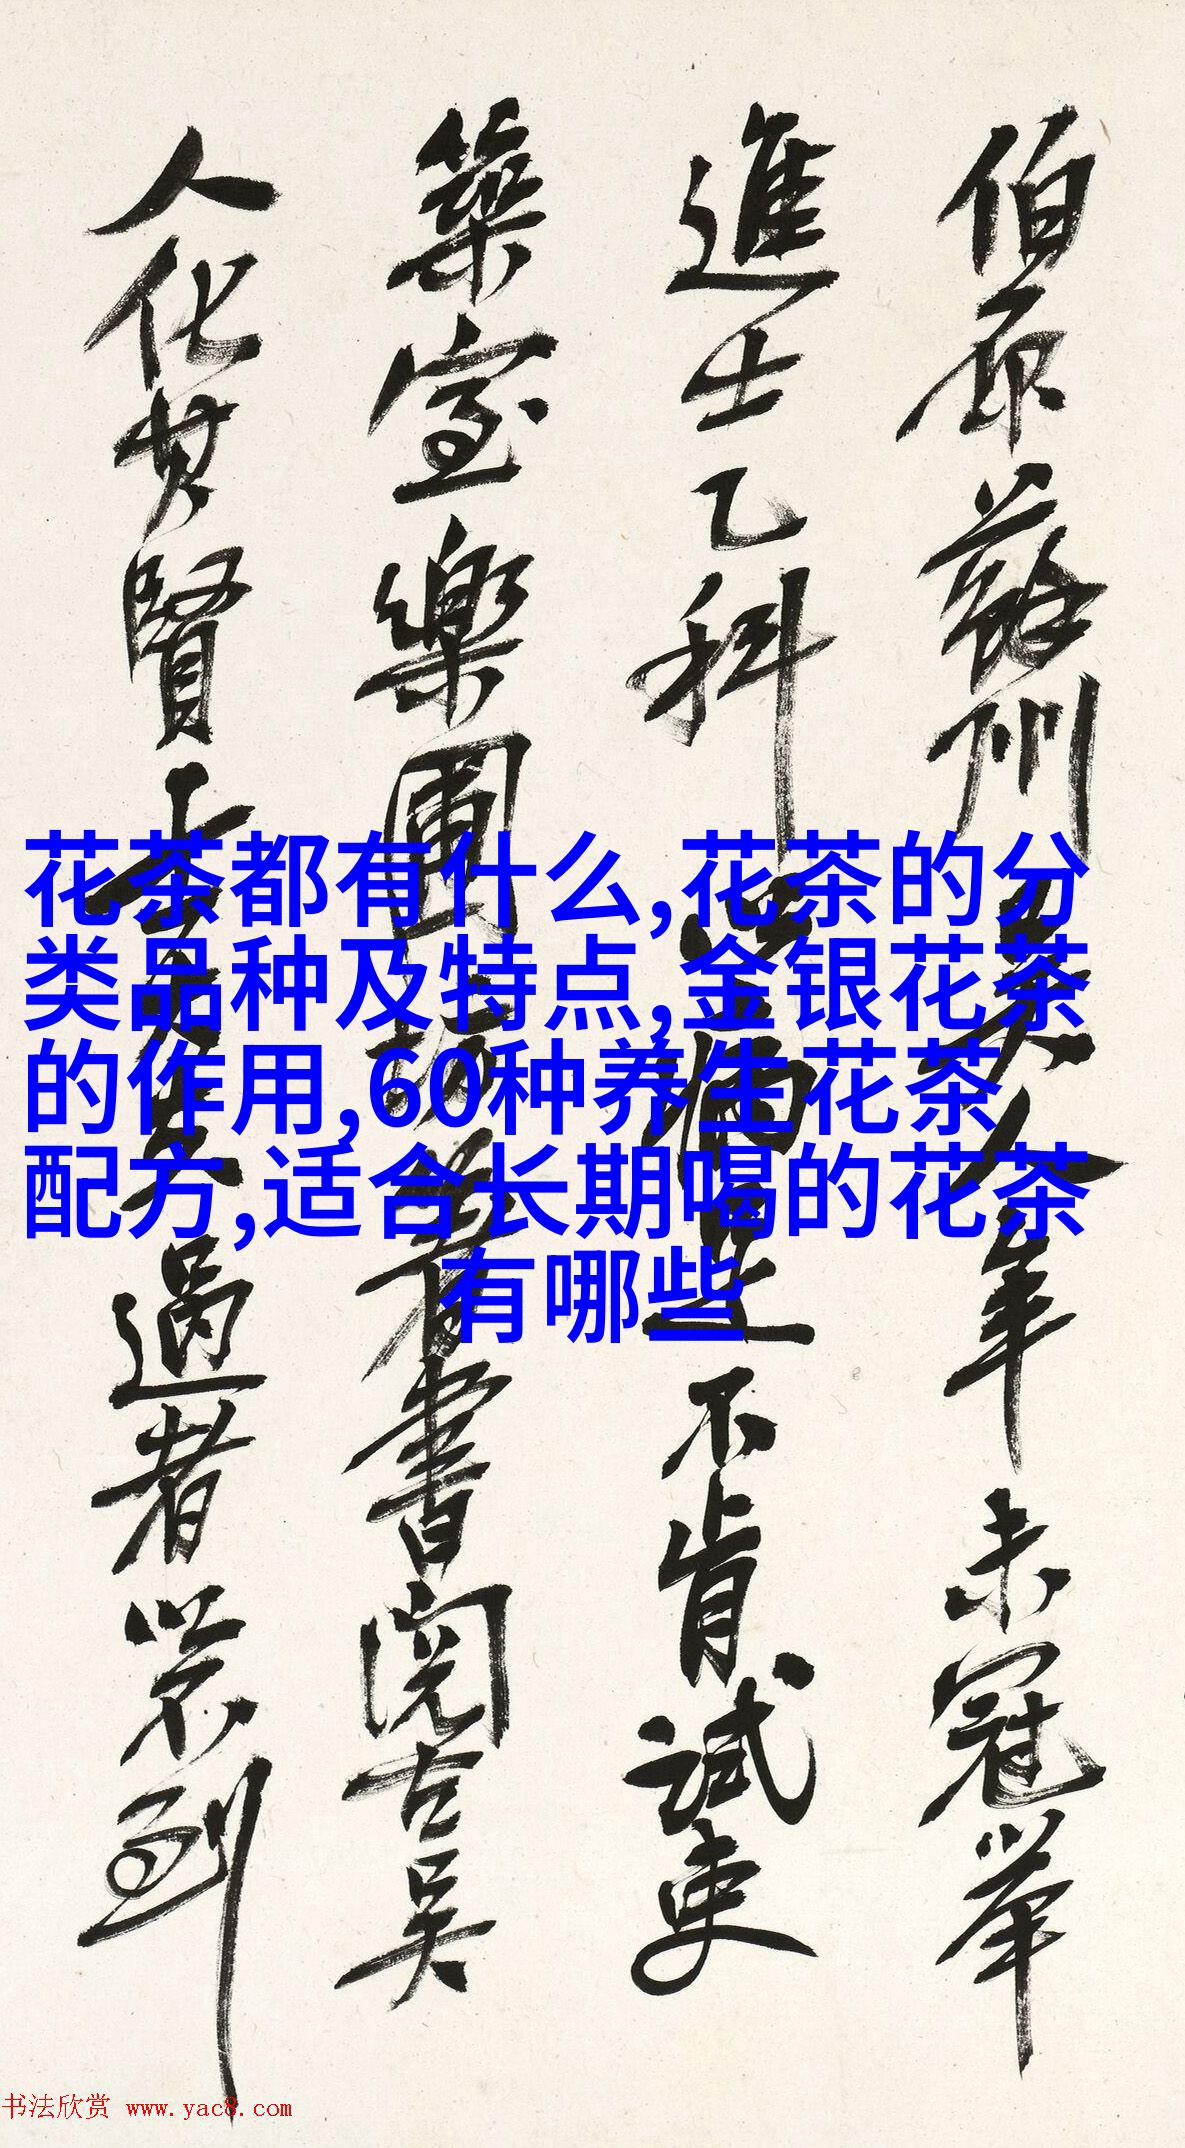 伯原蘇州吳人年未冠舉
進士乙科以病足不肯試吏
築室樂圃坊著書閱古吳
人化其賢
過者以不到
花茶都有什么,花茶的分
类品种及特点,金银花茶
的作用,60种养生花茶
配方,适合长期喝的花茶
有哪些
书法欣赏 www.yac8.com